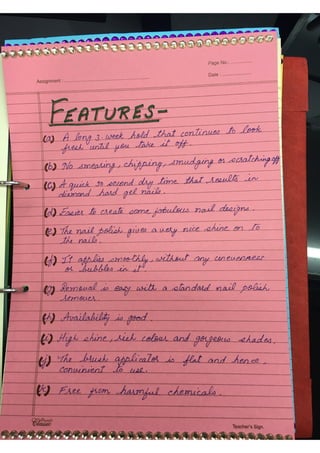 Page No.
Assignment
Date
FEATURES-
(a) A long 3 week hold that continues to look
fresh until you take it off.
(b) No smearing, chipping, smudging or scratching off
(c) A quick 10 second dry time that results in
diamond hard gel nails.
(d) Easier to create some fabulous nail designs.
(e) The nail polish gives a very nice shine on to
the nails.
(f) It applies smoothly, without any unevenness
or bubbles in it.
(g) Removal is easy with a standard nail polish
remover.
(h) Availability is good.
(i) High shine, rich colour and gorgeous shades.
(j) The brush applicator is flat and hence,
convinient to use.
(k) Free from harmful chemicals.
Classic
Teacher's Sign.